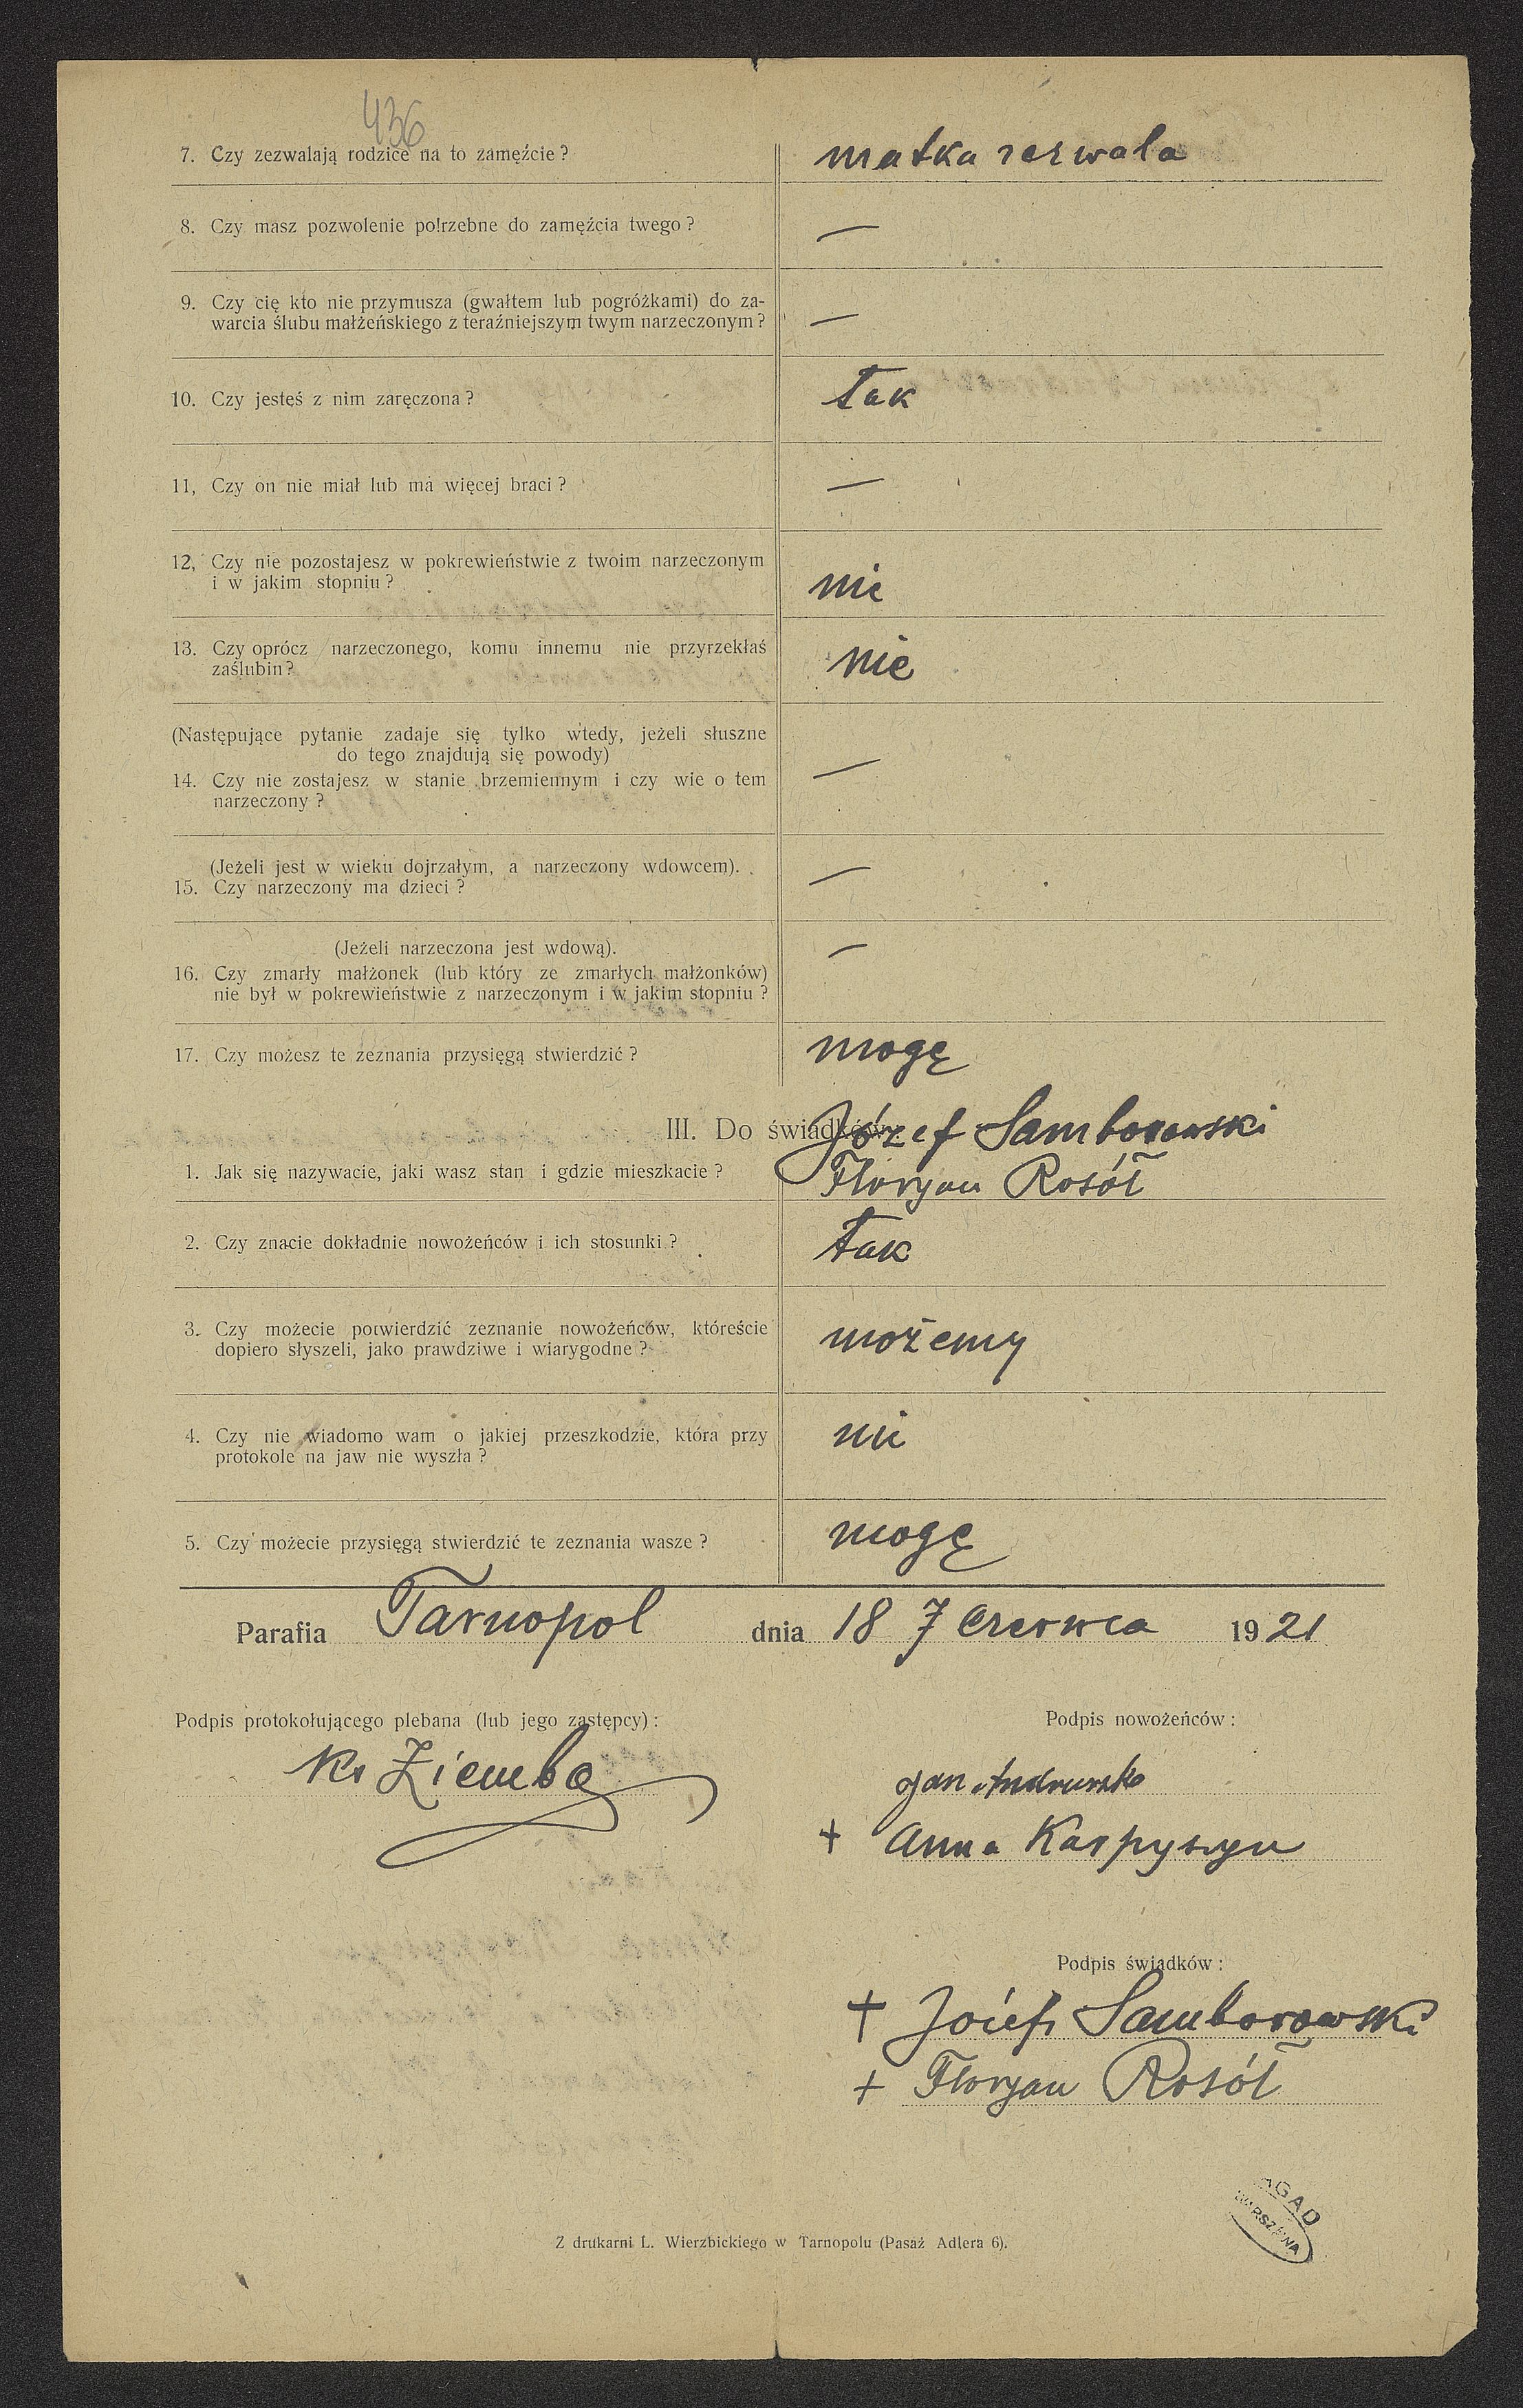 436
7. Czy zezwalają rodzice na to zamęźcie ? matka zezwala
8. Czy masz pozwolenie potrzebne do zamęźcia twego ? —
9. Czy cię kto nie przymusza (gwałtem lub pogróżkami) do za-
warcia ślubu małżeńskiego z teraźniejszym twym narzeczonym ? —
10. Czy jesteś z nim zaręczona ? tak
11, Czy on nie miał lub ma więcej braci ? —
12, Czy nie pozostajesz w pokrewieństwie z twoim narzeczonym
i w jakim stopniu ? nie
13. Czy oprócz narzeczonego, komu innemu nie przyrzekłaś
zaślubin ? nie
(Następujące pytanie zadaje się tylko wtedy, jeżeli słuszne
do tego znajdują się powody)
14. Czy nie zostajesz w stanie brzemiennym i czy wie o tem
narzeczony ? —
(Jeżeli jest w wieku dojrzałym, a narzeczony wdowcem).
15. Czy narzeczony ma dzieci ? —
(Jeżeli narzeczona jest wdową). —
16. Czy zmarły małżonek (lub który ze zmarłych małżonków)
nie był w pokrewieństwie z narzeczonym i w jakim stopniu ?
17. Czy możesz te zeznania przysięgą stwierdzić ? mogę
III. Do świadków. Józef Samborowski
1. Jak się nazywacie, jaki wasz stan i gdzie mieszkacie ? Floryan Rosół
2. Czy znacie dokładnie nowożeńców i ich stosunki ? tak
3. Czy możecie potwierdzić zeznanie nowożeńców, któreście
dopiero słyszeli, jako prawdziwe i wiarygodne ? możemy
4. Czy nie wiadomo wam o jakiej przeszkodzie, która przy
protokole na jaw nie wyszła ? nie
5. Czy możecie przysięgą stwierdzić te zeznania wasze ? mogę
Parafia Tarnopol dnia 18 Czerwca 1921
Podpis protokołującego plebana (lub jego zastępcy) : Podpis nowożeńców :
Ks Ziemba Jan Andruszko
+ Anna Karpyszyn
Podpis świadków :
+ Józef Samborowski
+ Floryan Rosół
AGAD
WARSZAWA
Z drukarni L. Wierzbickiego w Tarnopolu (Pasaż Adlera 6).